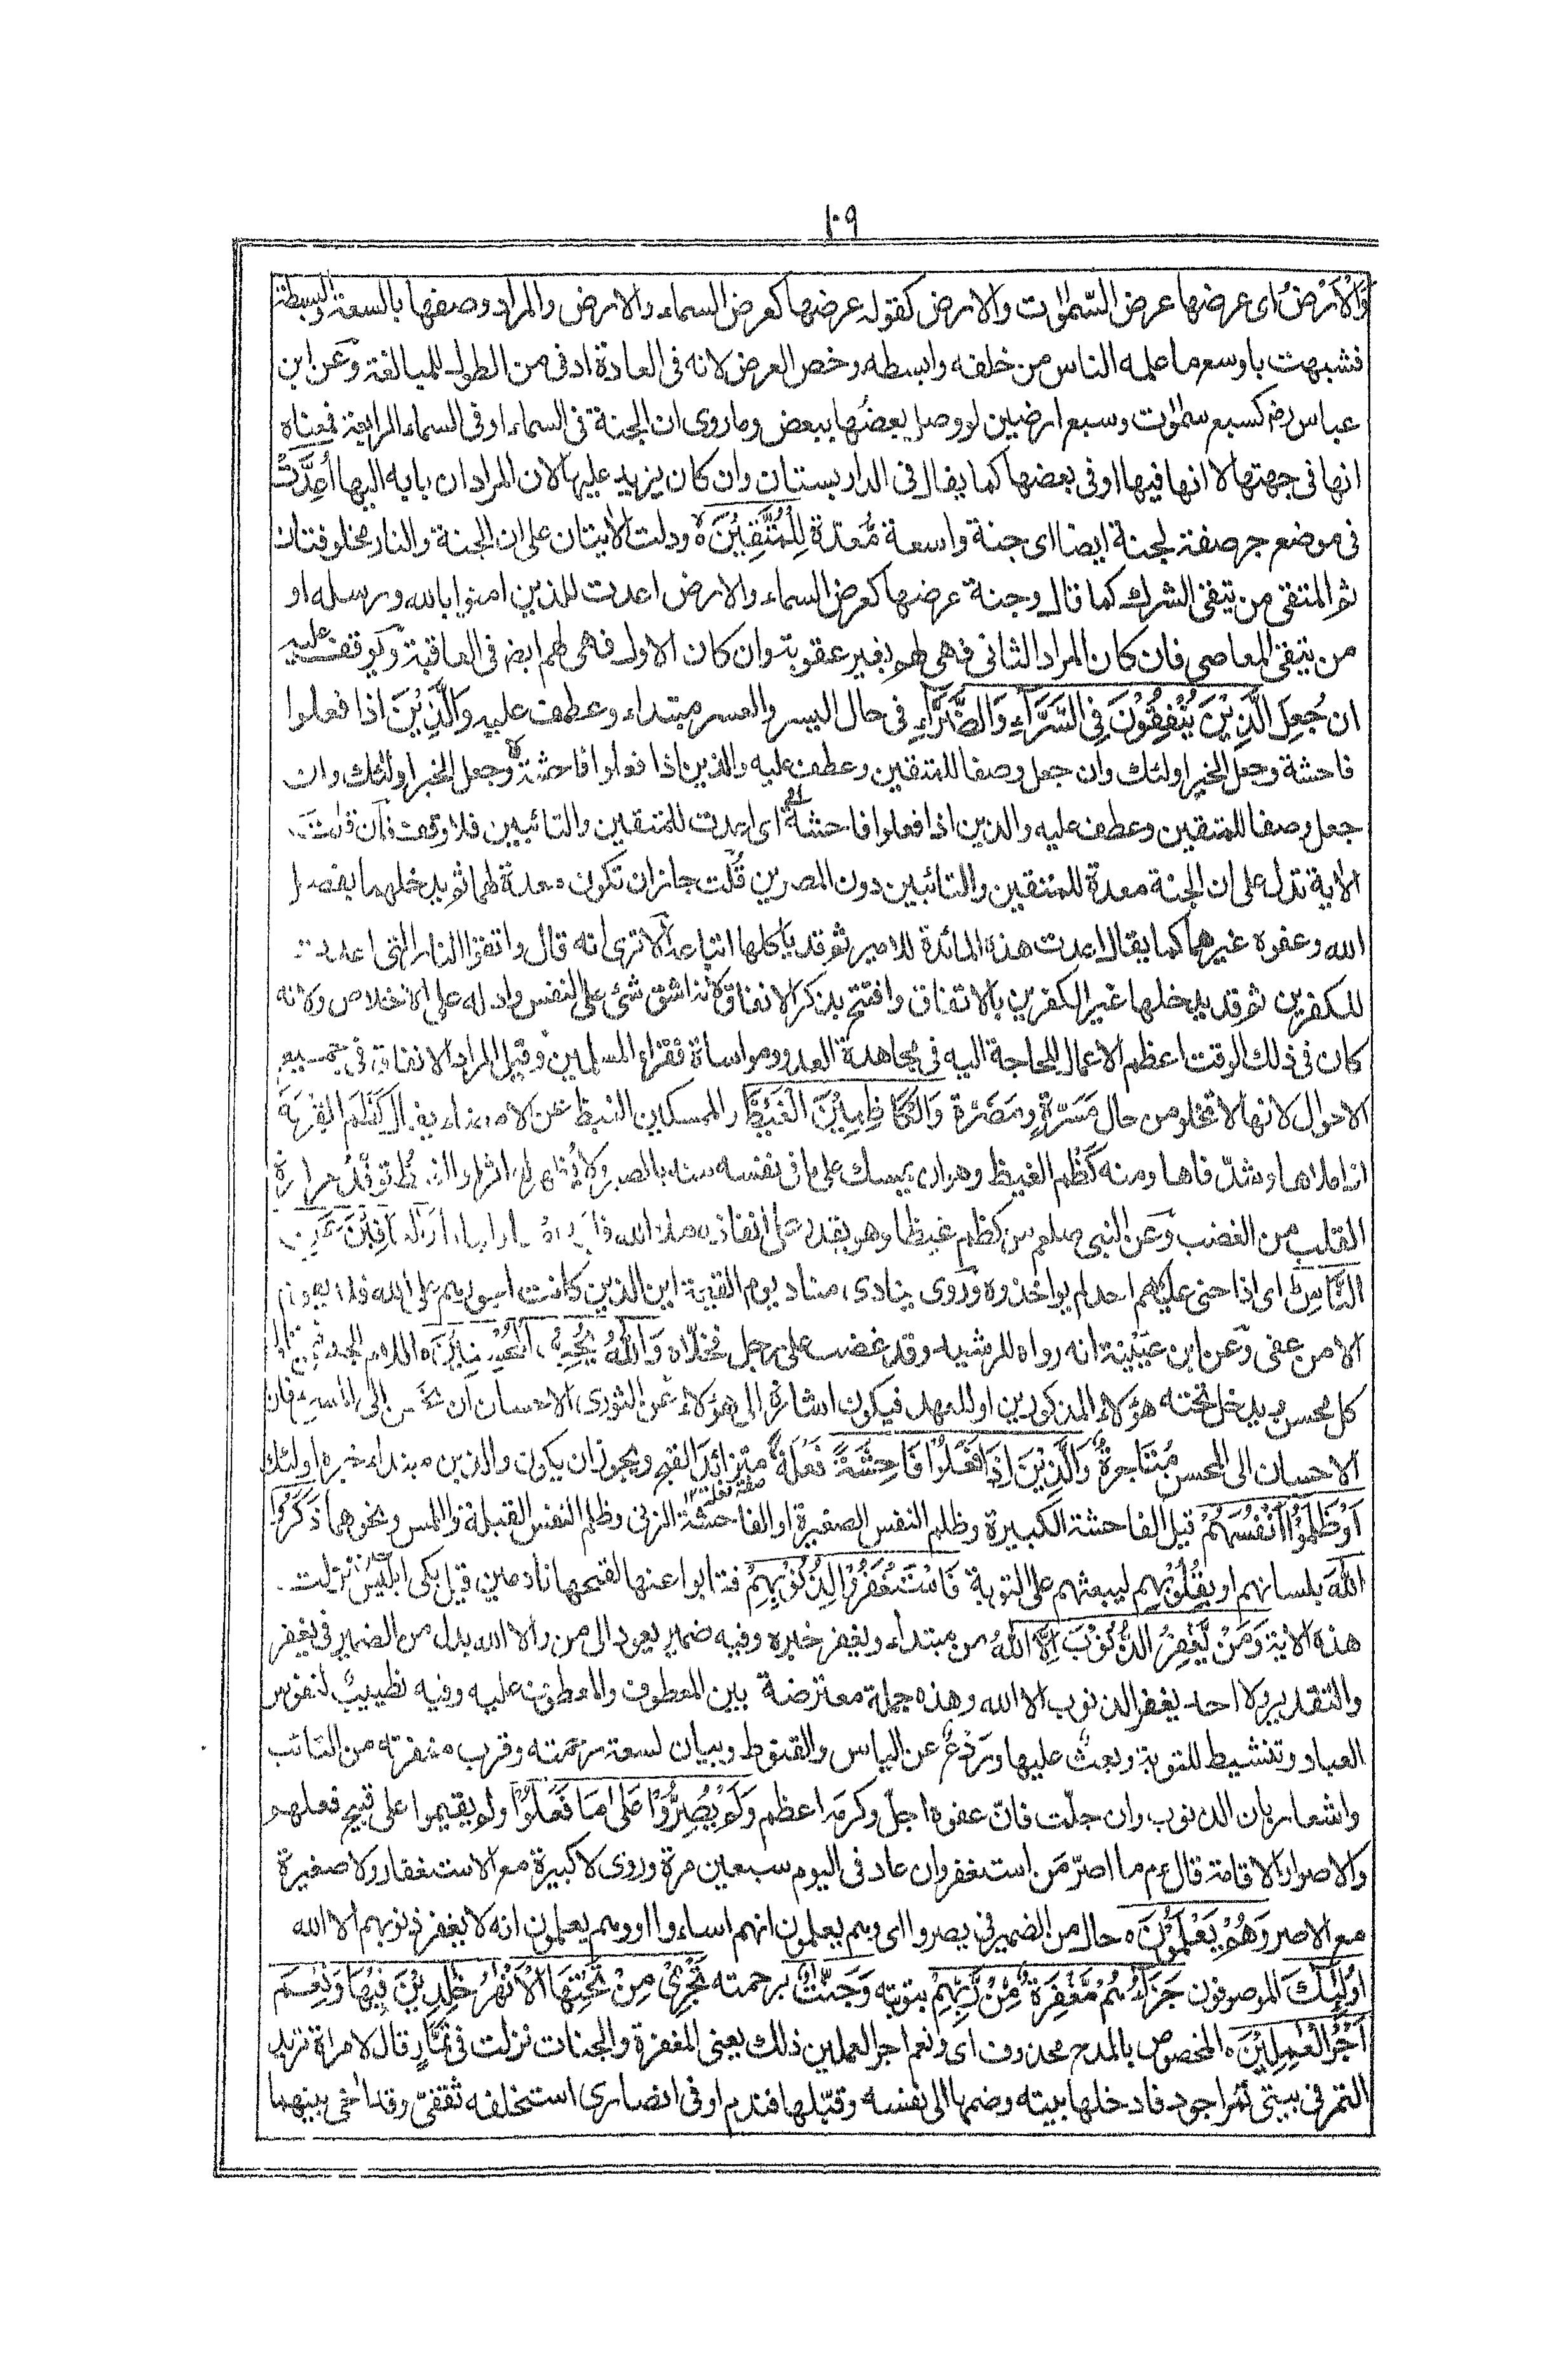 ١٠٩
وَالْاَرْضُ اى عرضها عرض السّمٰوٰت والارض كقوله عرضها كعرض السماء والارض والمراد وصفها بالسعة والبسطة
فشبهت باوسع ما علمه الناس من خلقه وابسطه وخص العرض لانه فى العادة ادنى من الطول للمبالغة وعن ابن
عباس رضـ كسبع سمٰوٰت وسبع ارضين لو وصل بعضها ببعض وما روى ان الجنة فى السماء او فى السماء الرابعة فمعناه
انها فى جهتها لا انها فيها او فى بعضها كما يقال فى الدار بستان وان كان يزيد عليها لان المراد ان بابه اليها اُعِدَّتْ
فى موضع جر صفة لجنة ايضا اى جنة واسعة مُعدّة لِلْمُتَّقِيْنَ ه ودلت الاٰيتان على ان الجنة والنار مخلوقتان
ثم المتقى من يتقى الشرك كما قال وجنة عرضها كعرض السماء والارض اعدت للذين امنوا بالله ورسله او
من يتقى المعاصى فان كان المراد الثانى فهى لهم بغير عقوبة وان كان الاول فهى لهم ايضـ فى العاقبة ويوقف عليه
ان جُعِلَ الَّذِيْنَ يُنْفِقُوْنَ فِى السَّرَّآءِ وَالضَّرَّآءِ فى حال اليسر والعسر مبتداء وعطف عليه وَالَّذِيْنَ اذا فعلوا
فاحشة وجعل الخبر اولئك وان جعل وصفا للمتقين وعطف عليه والذين اذا فعلوا فاحشة وجعل الخبر اولئك وان
جعل وصفا للمتقين وعطف عليه والذين اذا فعلوا فاحشة اى اعدت للمتقين والتائبين فلا وقف فان قلت
الاية تدل على ان الجنة معدة للمتقين والتائبين دون المصرين قُلت جاز ان تكون معدة لهما ثم يدخلهما بفضل
الله وعفوه غيرهما كما يقال اعدت هذه المائدة للامير ثم قد ياكلها اتباعه الا ترى انه قال واتقوا النار التى اعدت
للكفرين ثم قد يدخلها غير الكفرين بالاتفاق وافتتح بذكر الانفاق لانه اشق شئ على النفس وادله على الاخلاص ولانه
كان فى ذلك الوقت اعظم الاعمال للحاجة اليه فى مجاهدة العدو ومواساة فقراء المسلمين وقيل المراد الانفاق فى جميع
الاحوال لانها لا تخلو من حال مَسَرَّةٍ ومَضَرّة وَالْكَاظِمِيْنَ الْغَيْظَ والممسكين الغيظ عن الامضاء يقال كَظَمَ القِربة
اذا ملاها وشدّ فاها ومنه كَظْم الغيظ وهو ان يمسك على ما فى نفسه منه بالصبر ولا يُظهر له اثرا والغيظ توقّدُ حرارة
القلب من الغضب وعن النبى صلعم من كظم غيظا وهو يقدر على انفاذه ملا الله قلبه امنا وايمانا وَالْعَافِيْنَ عَنِ
النَّاسِ ط اى اذا جنى عليهم احد لم يواخذوه وروى ينادى مناد يوم القيمة اين الذين كانت اجورهم على الله فلا يقوم
الا من عفى وعن ابن عيينة انه رواه للرشيد وقد غضب على رجل فخلّاه وَاللّٰهُ يُحِبُّ الْمُحْسِنِيْنَ ه اللام للجنس فيتناول
كل محسن ويدخل تحته هؤلاء المذكورين او للعهد فيكون اشارة الى هؤلاء عن الثورى الاحسان ان تحسن الى المسئ فان
الاحسان الى المحسن مُتاجرةٌ وَالَّذِيْنَ اِذَا فَعَلُوْا فَاحِشَةً فَعلَةً متزائدَ القبح ويجوز ان يكون والذين مبتداء خبره اولئك
صفة فعلة ١٢
اَوْ ظَلَمُوْٓا اَنْفُسَهُمْ قيل الفاحشة الكبيرة وظلم النفس الصغيرة او الفاحشة الزنى وظلم النفس القبلة والمس ونحوهما ذَكَرُوا
اللّٰهَ بلسانهم او بقُلُوْبِهِم ليبعثهم على التوبة فَاسْتَغْفَرُوْا لِذُنُوْبِهِمْ فتابوا عنها لقبحها نادمين قيل بكى ابليس حين نزلت
هذه الاية وَمَنْ يَّغْفِرُ الذُّنُوْبَ اِلَّا اللّٰهُ من مبتداء ويغفر خبره وفيه ضمير يعود الى من والا الله بدل من الضمير فى يغفر
والتقدير ولا احد يغفر الذنوب الا الله وهذه جملة معترضة بين المعطوف والمعطوف عليه وفيه تطييبٌ لنفوس
العباد وتنشيط للتوبة وبعثٌ عليها ورَدْعٌ عن الياس والقنوط وبيان لسعة رحمته وقرب مغفرته من التائب
واشعار بان الذنوب وان جلّت فانّ عفوه اجلّ وكرمَه اعظم وَلَمْ يُصِرُّوْا عَلٰى مَا فَعَلُوْا ولم يقيموا على قبيح فعلهم
والاصرار الاقامة قال ءم ما اصرّ مَن استغفر وان عاد فى اليوم سبعين مرة وروى لا كبيرة مع الاستغفار ولا صغيرة
مع الاصر وَهُمْ يَعْلَمُوْنَ ه حال من الضمير فى يصروا اى وهم يعلمون انهم اساءوا او وهم يعلمون انه لا يغفر ذنوبهم الا الله
اُولٰٓئِكَ الموصوفون جَزَآءُهُمْ مَّغْفِرَةٌ مِّنْ رَّبِّهِمْ بتوبته وَجَنّٰتٌ برحمته تَجْرِيْ مِنْ تَحْتِهَا الْاَنْهٰرُ خٰلِدِيْنَ فِيْهَا وَنِعْمَ
اَجْرُ الْعٰمِلِيْنَ ه المخصوص بالمدح محذوف اى ونعم اجر العملين ذلك يعنى المغفرة والجنات نزلت فى تَمَّارٍ قال لامراة تريد
التمر فى بيتى تمر اجود فادخلها بيته وضمها الى نفسه وقبّلها فندم او فى انصارى استخلفه ثقفىّ وقد اٰخى بينهما